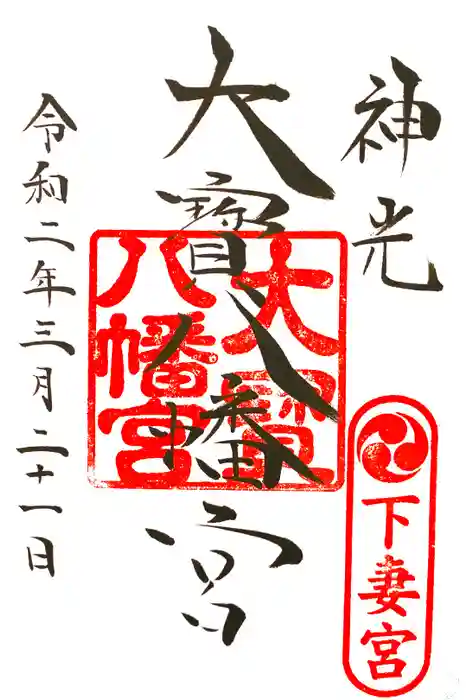 神光
下妻宮
大寳八幡宮
大寳八幡宮
令和二年三月二十一日